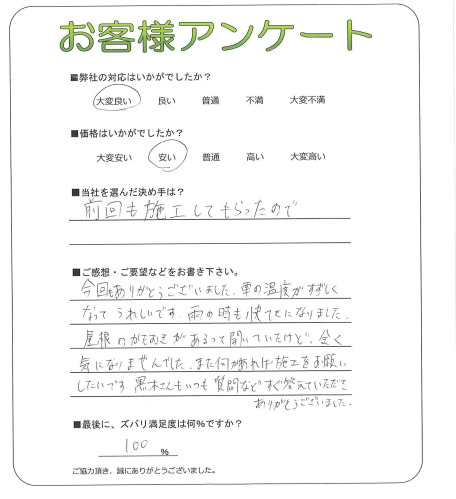 お客様アンケート
■弊社の対応はいかがでしたか？
大変良い 良い 普通 不満 大変不満
■価格はいかがでしたか？
大変安い 安い 普通 高い 大変高い
■当社を選んだ決め手は？
前回も施工してもらったので
■ご感想・ご要望などをお書き下さい。
今回もありがとうございました。車の温度がすずしく
なってうれしいです。雨の時も快てきになりました。
屋根のがたつきがあるって聞いていたけど、全く
気になりませんでした。また何かあれば施工をお願い
したいです。黒木さんもいつも質問などすぐ答えていただき
ありがとうございました。
■最後に、ズバリ満足度は何％ですか？
100 ％
ご協力頂き、誠にありがとうございました。